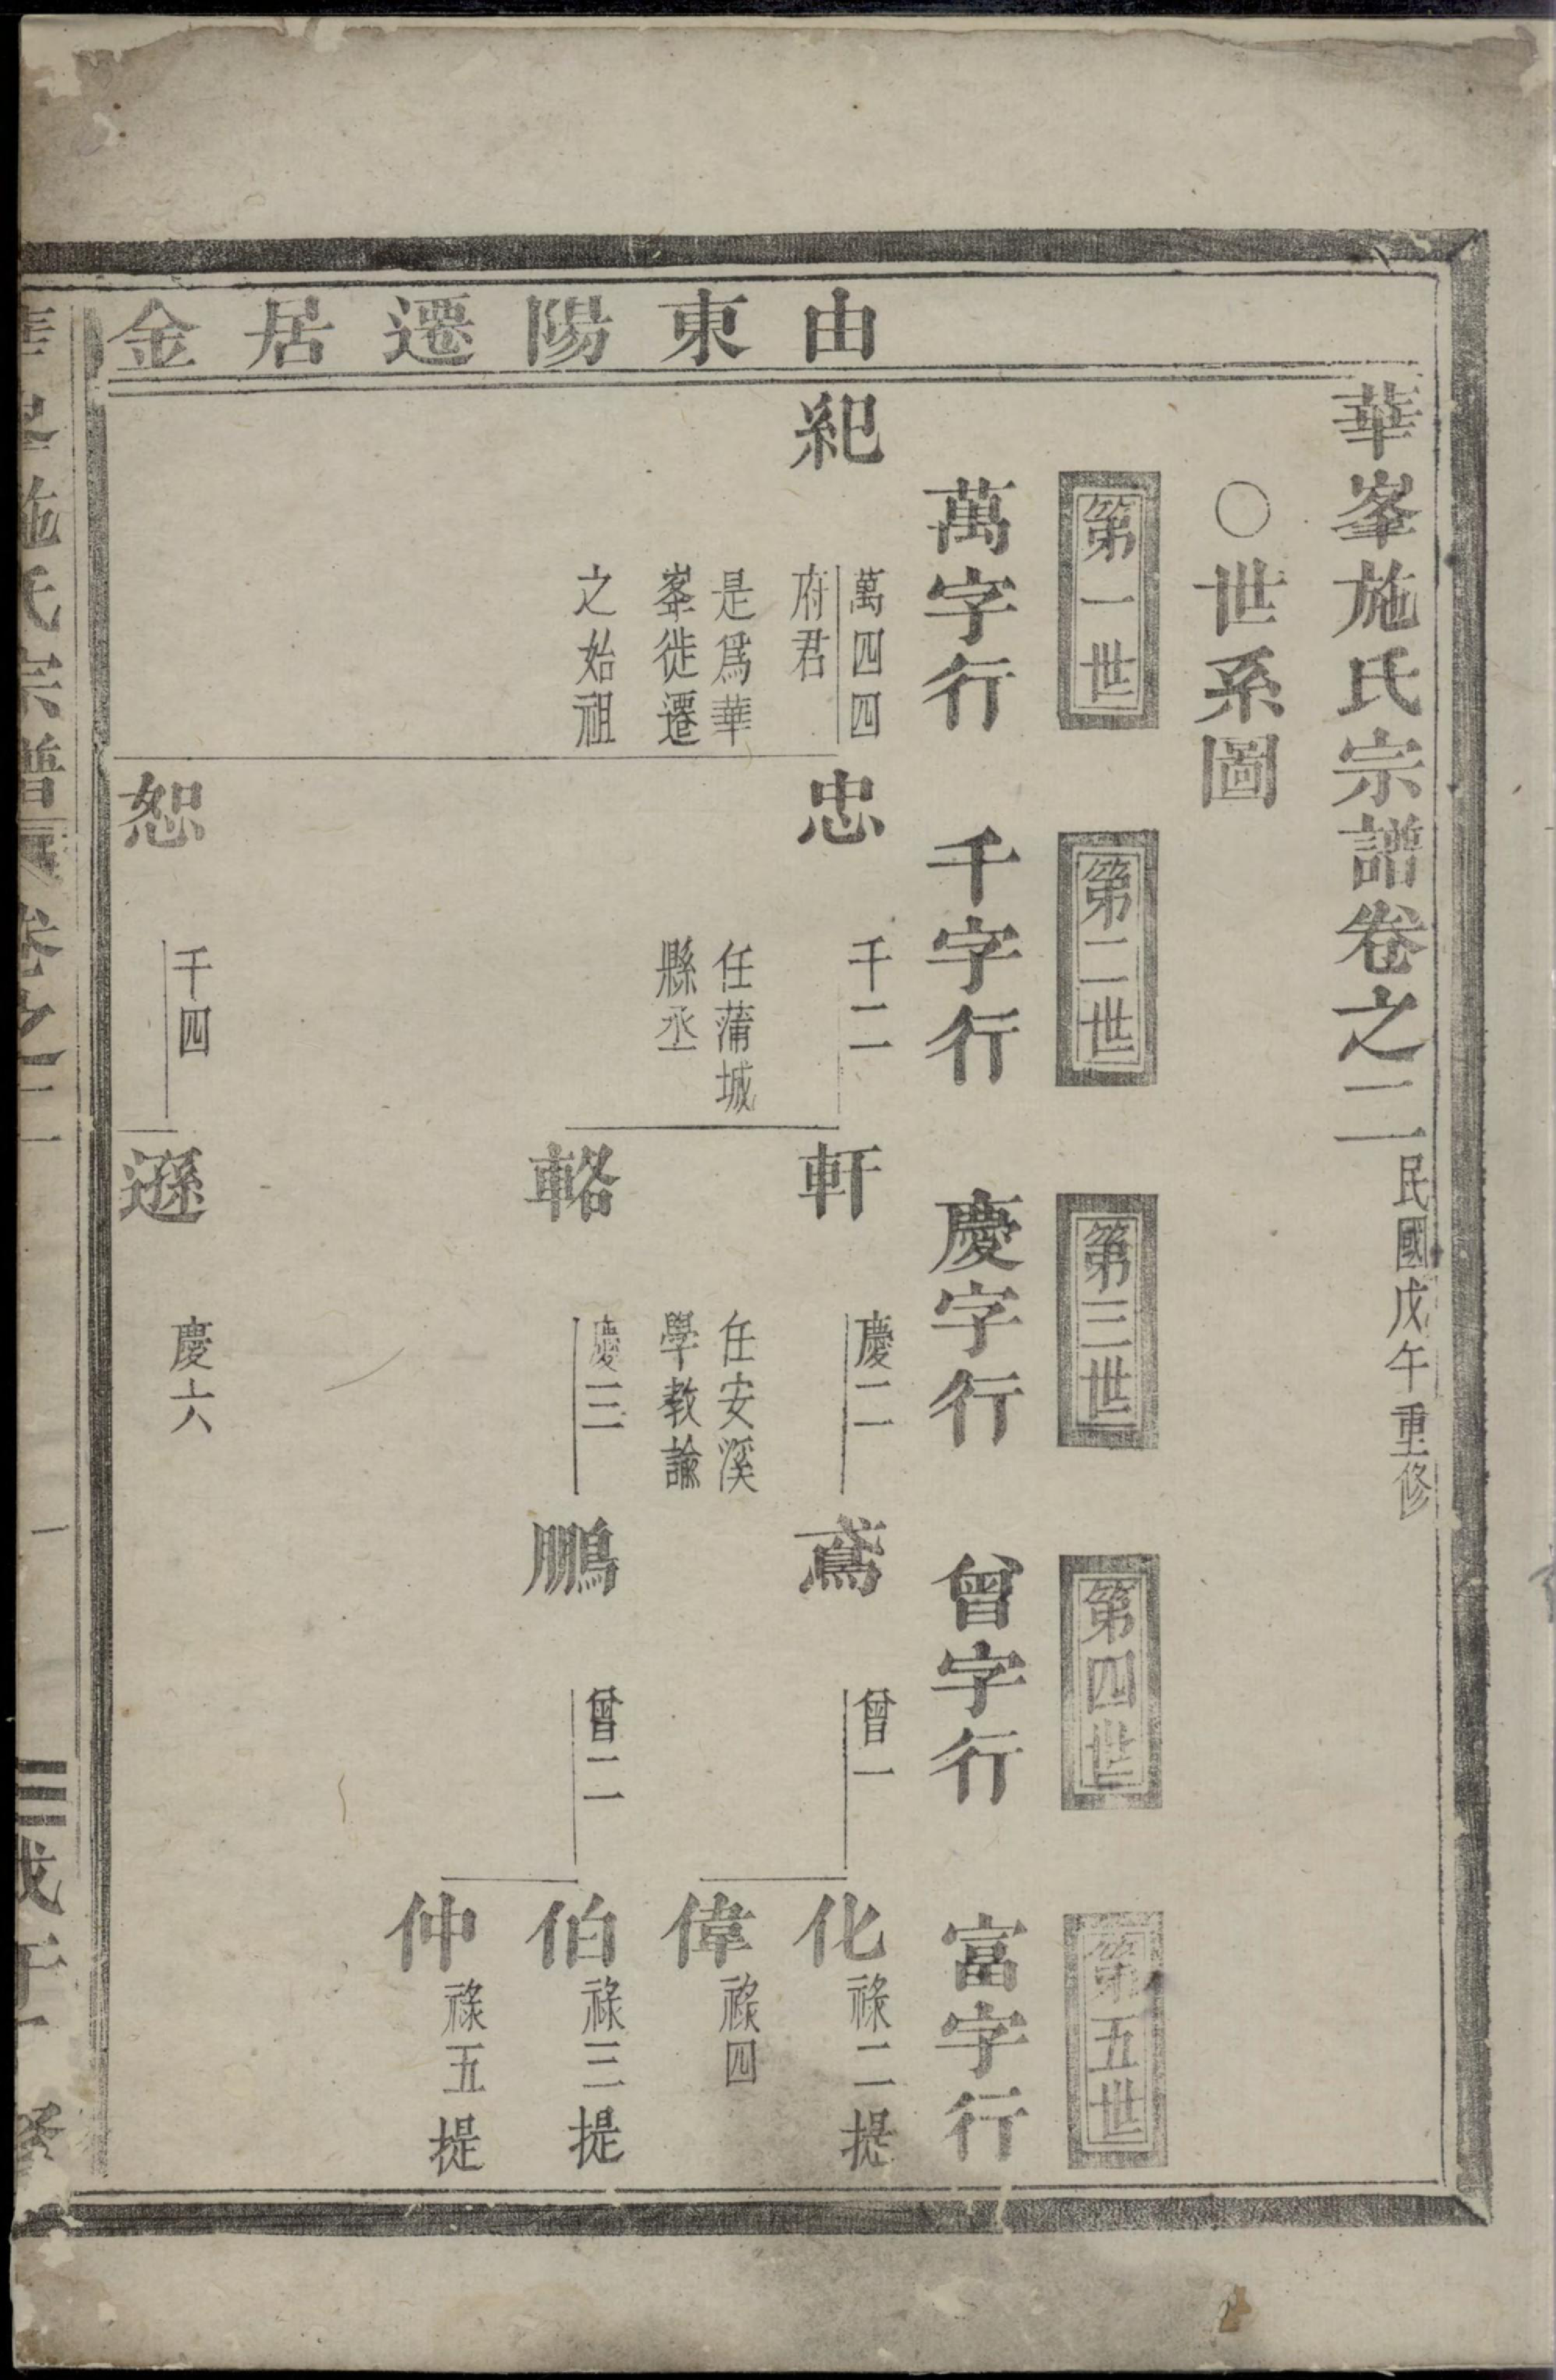 華峯施氏宗譜卷之二 民國戊午重修
○世系圖
第一世 第二世 第三世 第四世 第五世
萬字行 千字行 慶字行 曾字行 富字行
由東陽遷居金
紀
萬四四
府君
是爲華
峯徙遷
之始祖
忠
千二
任蒲城
縣丞
軒
慶二
任安溪
學教諭
鳶
曾一
化
祿二提
偉
祿四
輅
慶三
鵬
曾二
伯
祿三提
仲
祿五提
恕
千四
遜
慶六
施氏宗譜 卷之二
一